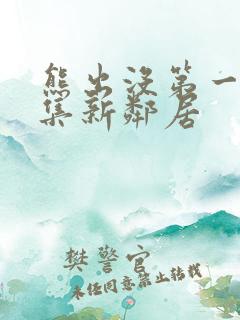 熊出没第一
集新邻居
樊警官
未经同意禁止转载